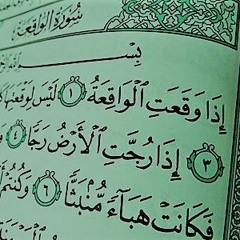 سُورَةُ الوَاقِعَةِ
بِسْـ
إِذَا وَقَعَتِ ٱلْوَاقِعَةُ ١ لَيْسَ لِوَقْعَتِهَا
٣ إِذَا رُجَّتِ ٱلْأَرْضُ رَجًّا ٤
فَكَانَتْ هَبَآءً مُّنۢبَثًّا ٦ وَكُنتُمْ